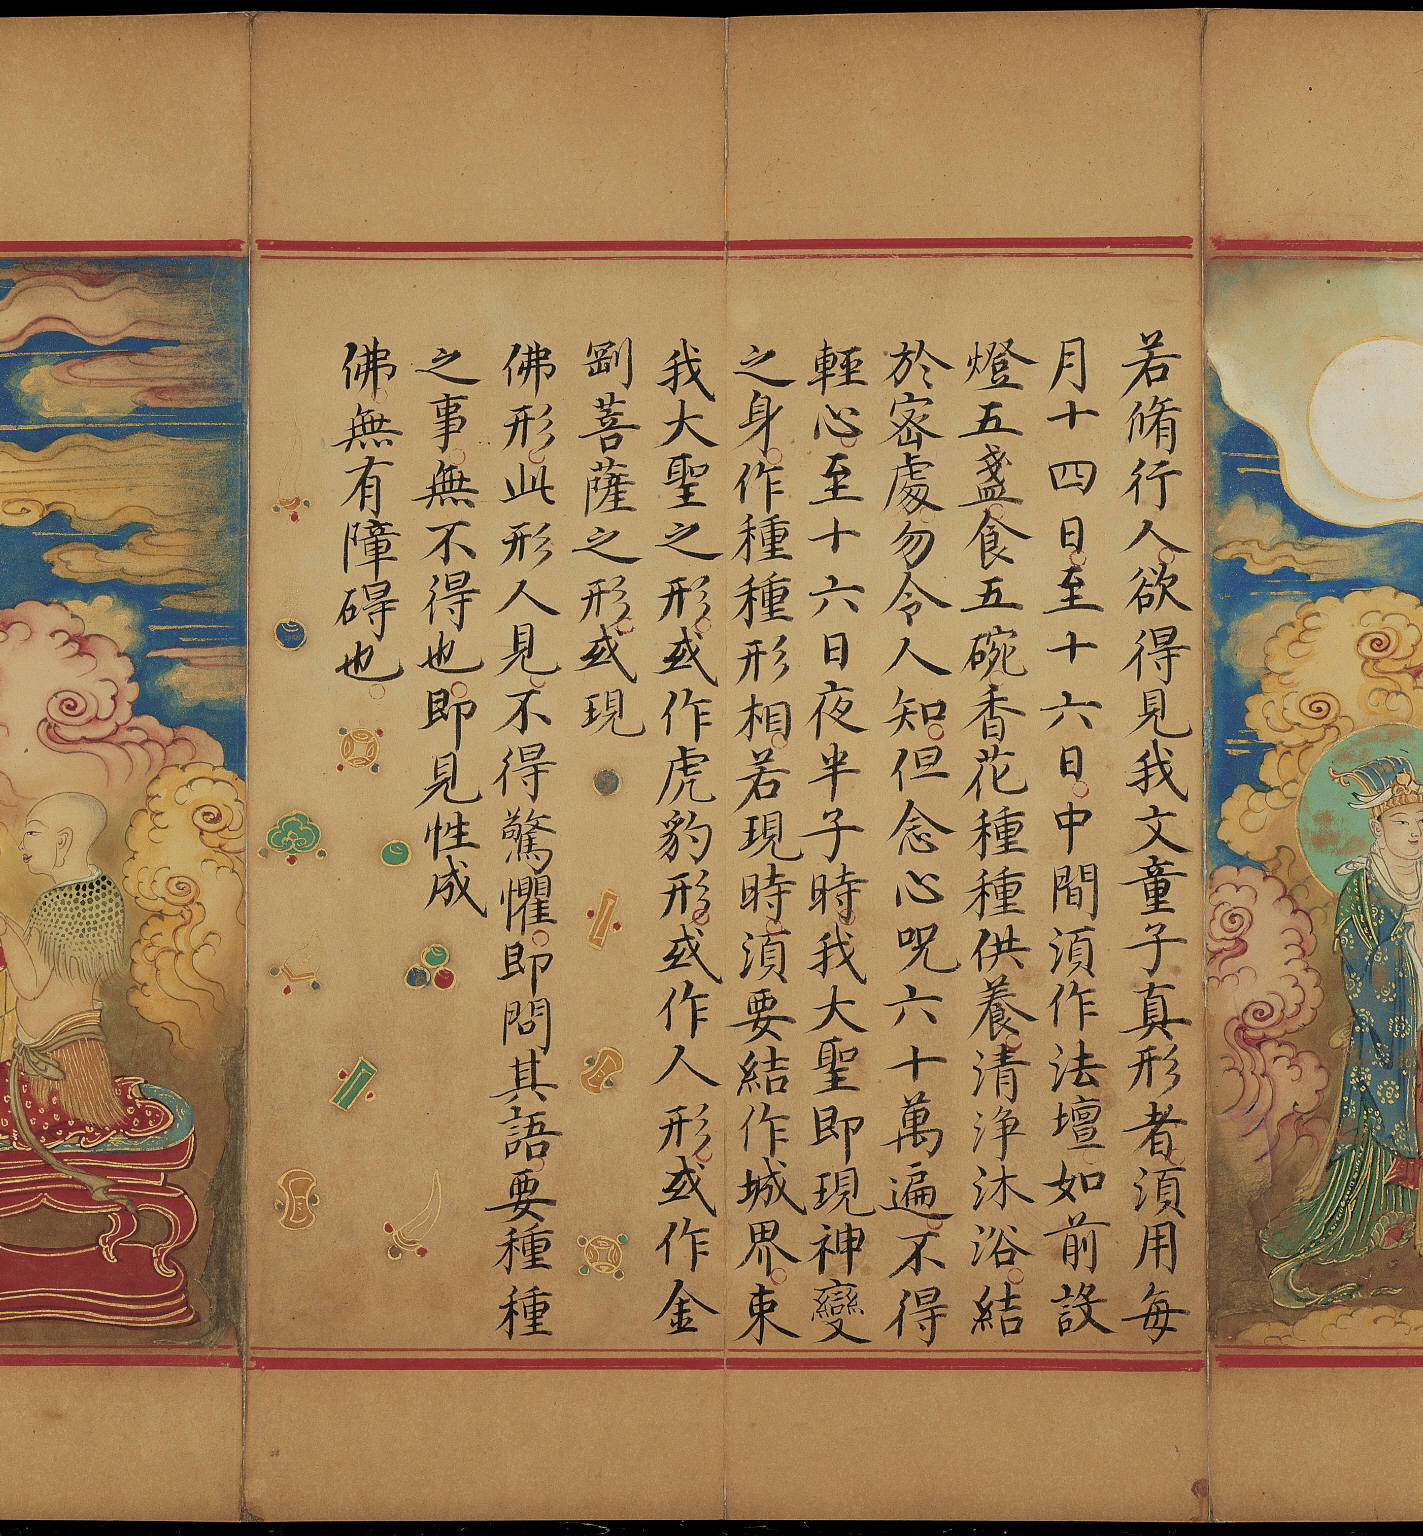 若脩行人欲得見我文童子真形者須用每
月十四日至十六日中間須作法壇如前設
燈五盞食五碗香花種種供養清浄沐浴結
於密處勿令人知但念心呪六十萬遍不得
輕心至十六日夜半子時我大聖即現神變
之身作種種形相若現時須要結作城界東
我大聖之形或作虎豹形或作人形或作金
剛菩薩之形或現
佛形此形人見不得驚懼即問其語要種種
之事無不得也即見性成
佛無有障碍也